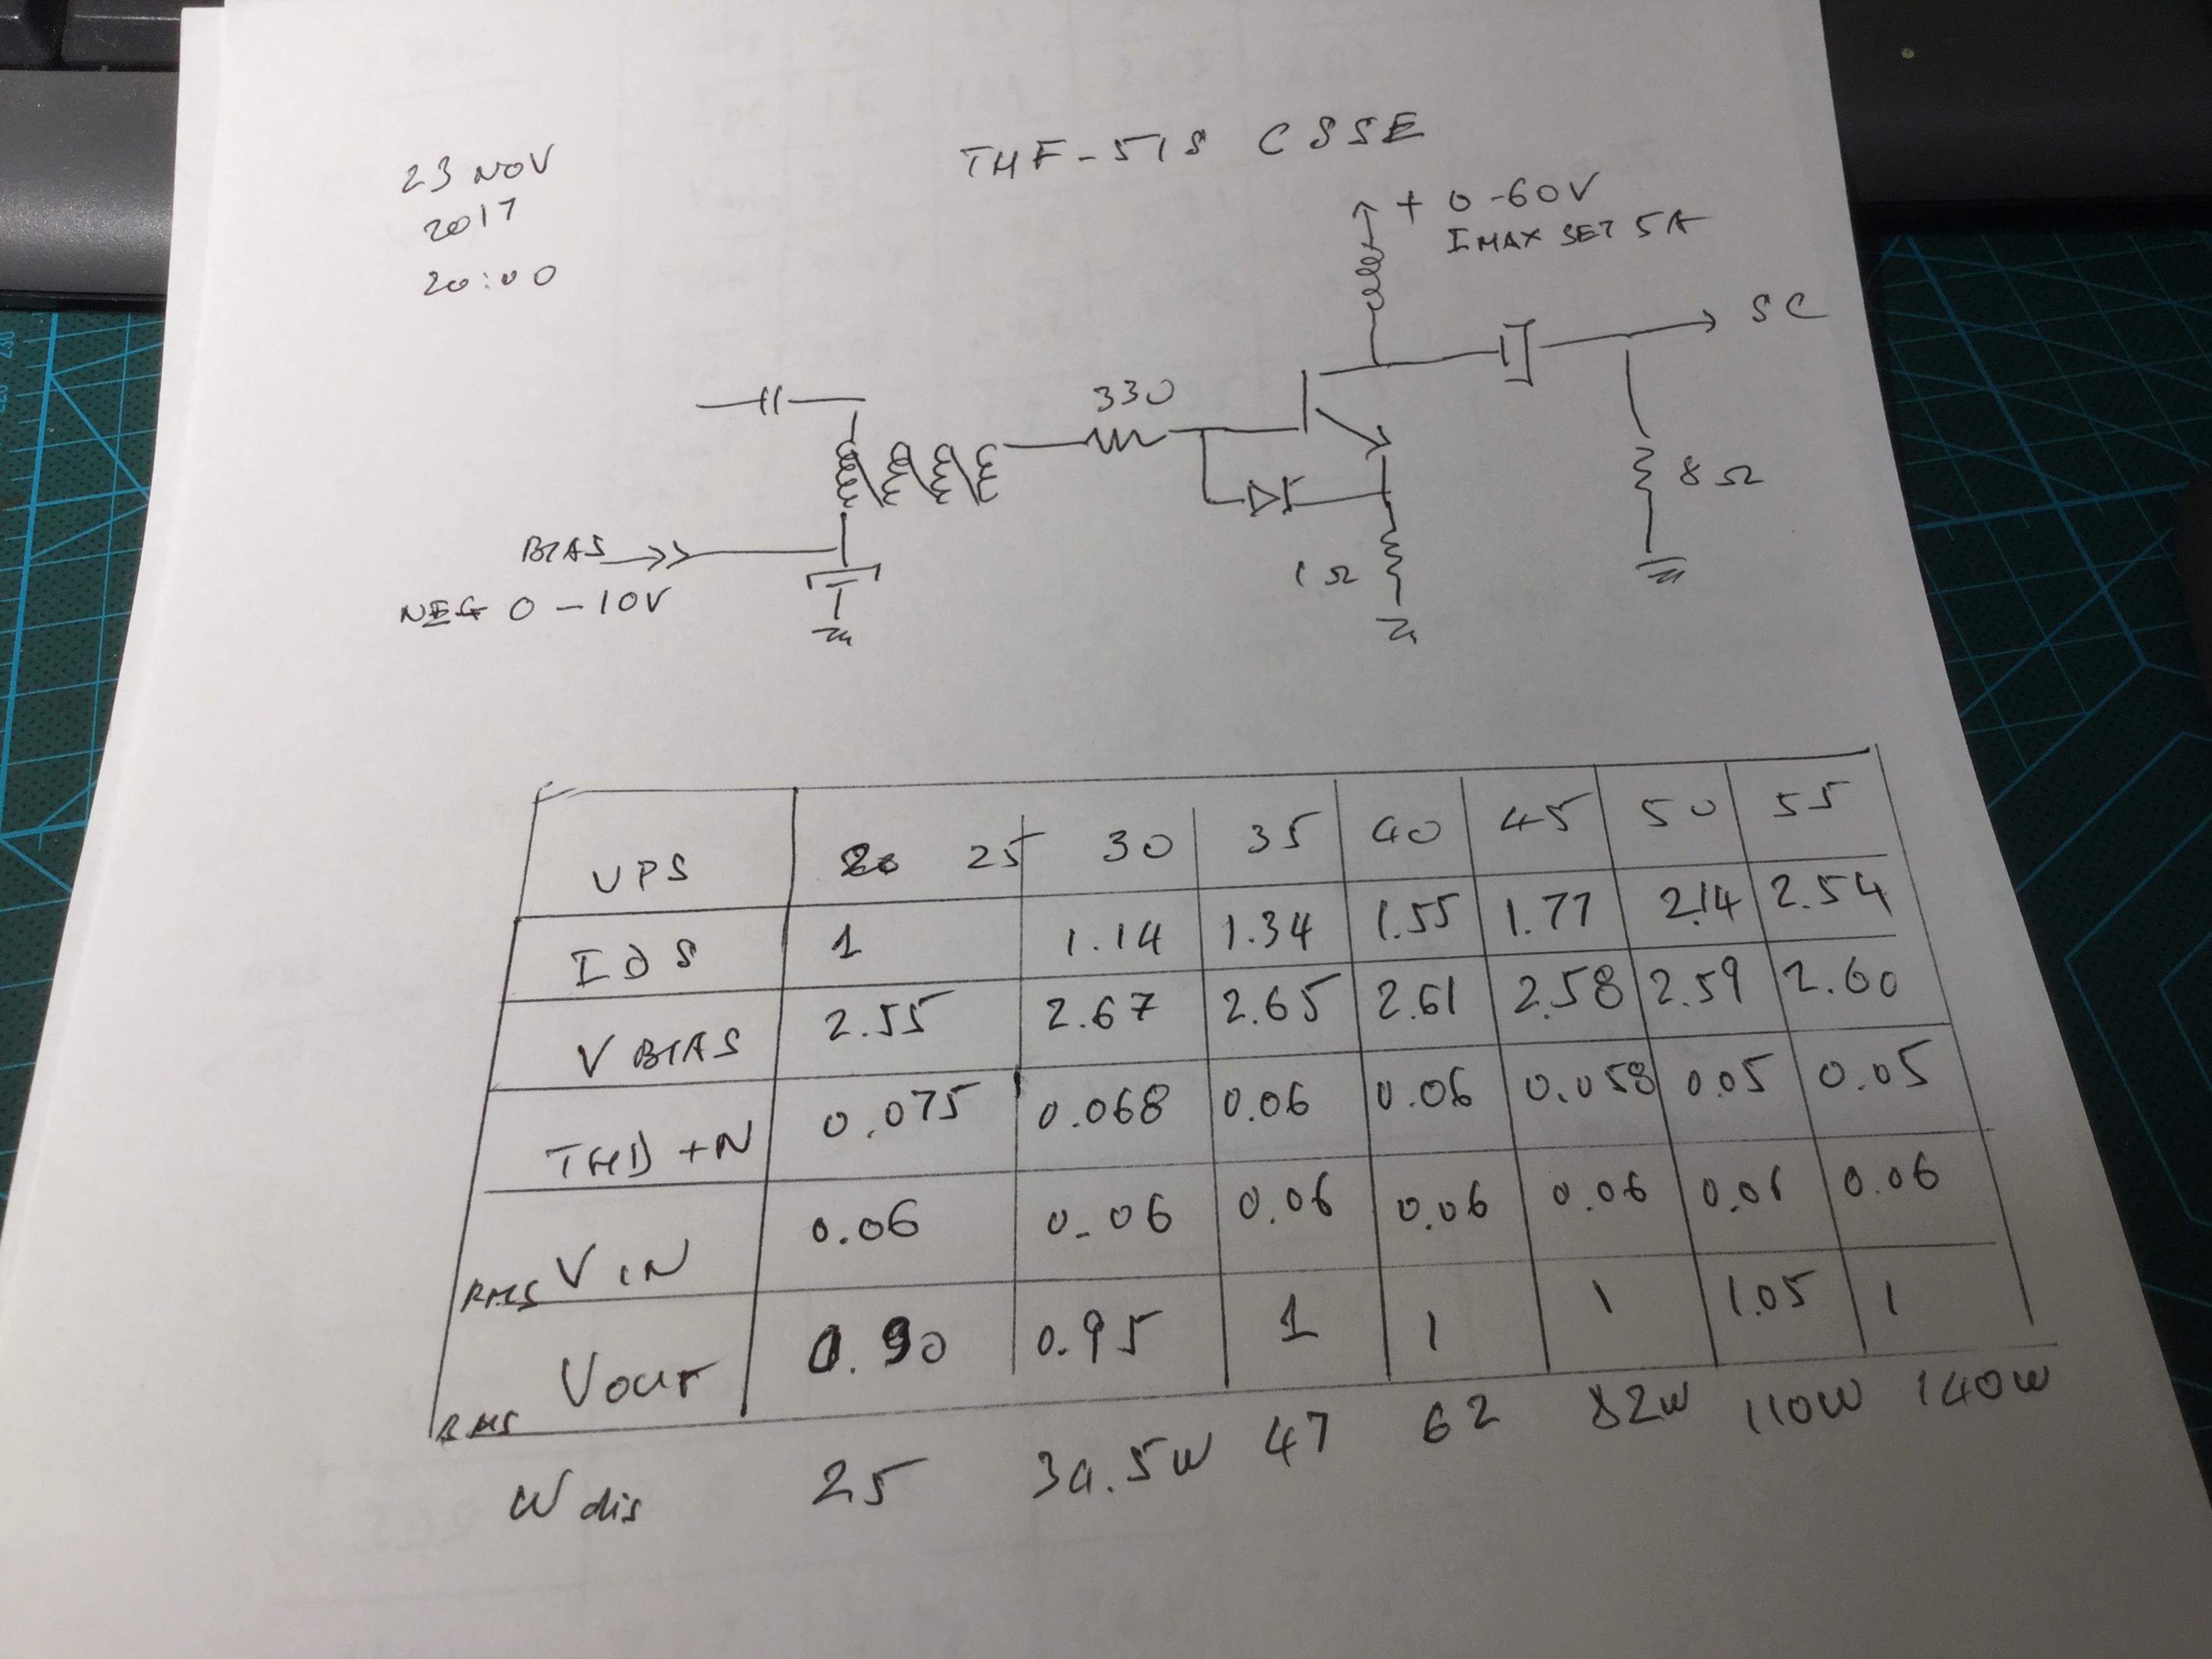 23 NOV
2017
20:00
THF-51S CSSE
+ 0-60V
IMAX SET 5A
SC
330
8Ω
1Ω
BIAS
NEG 0-10V
VPS 20 25 30 35 40 45 50 55
IDS 1 1.14 1.34 1.55 1.77 2.14 2.54
V BIAS 2.55 2.67 2.65 2.61 2.58 2.59 2.60
THD+N 0.075 0.068 0.06 0.06 0.058 0.05 0.05
RMS VIN 0.06 0.06 0.06 0.06 0.06 0.06 0.06
RMS VOUT 0.90 0.95 1 1 1 1.05 1
W dis 25 34.5W 47 62 82W 110W 140W